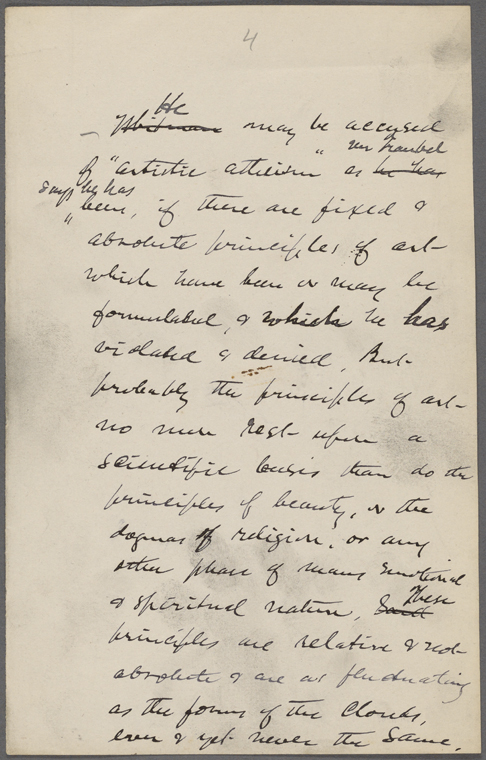 4
He
Whitman may be accused
of "artistic atheism" as he has
Mr Traubel
says he has
been, if there are fixed &
absolute principles of art
which have been or may be
formulated, & which he has
violated & denied. But
probably the principles of art
no more rest upon a
scientific basis than do the
principles of beauty, or the
dogmas of religion, or any
other phase of mans emotional
& spiritual nature, Such
These
principles are relative & not
absolute & are as fluctuating
as the forms of the clouds,
ever & yet never the same.